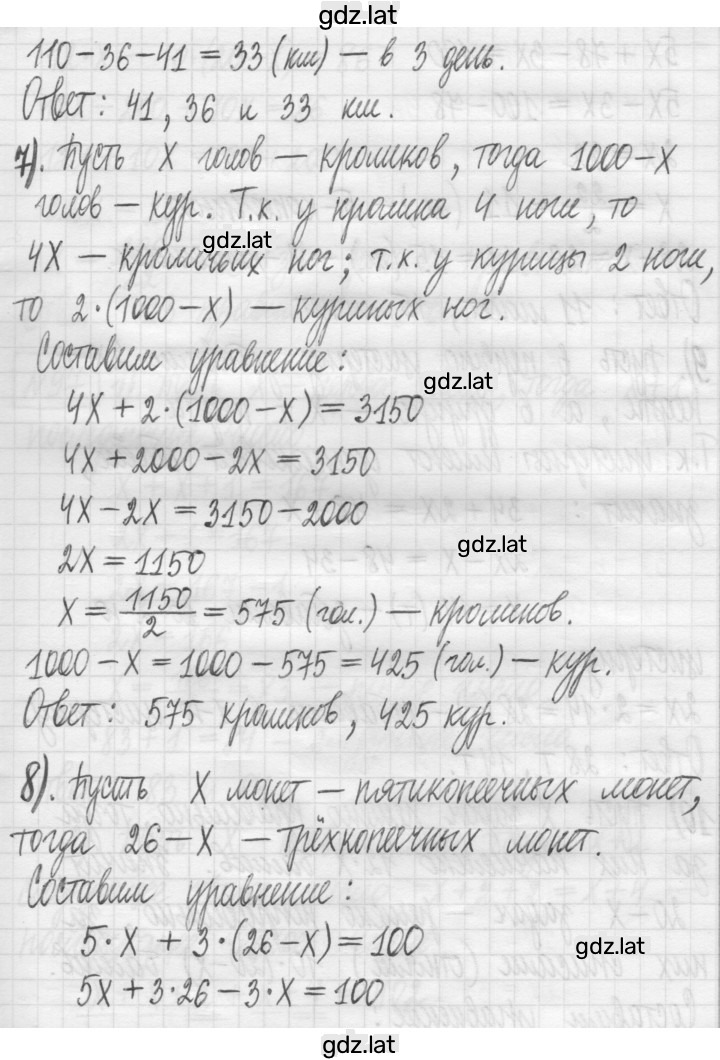 gdz.lat
110-36-41 = 33 (км) — в 3 день.
Ответ: 41, 36 и 33 км.
7). Пусть X голов — кроликов, тогда 1000-X
голов — кур. Т.к. у кролика 4 ноги, то
gdz.lat
4X — кроличьих ног; т.к. у курицы 2 ноги,
то 2·(1000-X) — куриных ног.
Составим уравнение:
gdz.lat
4X + 2·(1000-X) = 3150
4X + 2000 - 2X = 3150
4X - 2X = 3150 - 2000
gdz.lat
2X = 1150
X = 1150/2 = 575 (гол.) — кроликов.
1000 - X = 1000 - 575 = 425 (гол.) — кур.
Ответ: 575 кроликов, 425 кур.
8). Пусть X монет — пятикопеечных монет,
тогда 26-X — трёхкопеечных монет.
Составим уравнение:
5·X + 3·(26-X) = 100
gdz.lat
5X + 3·26 - 3·X = 100
gdz.lat